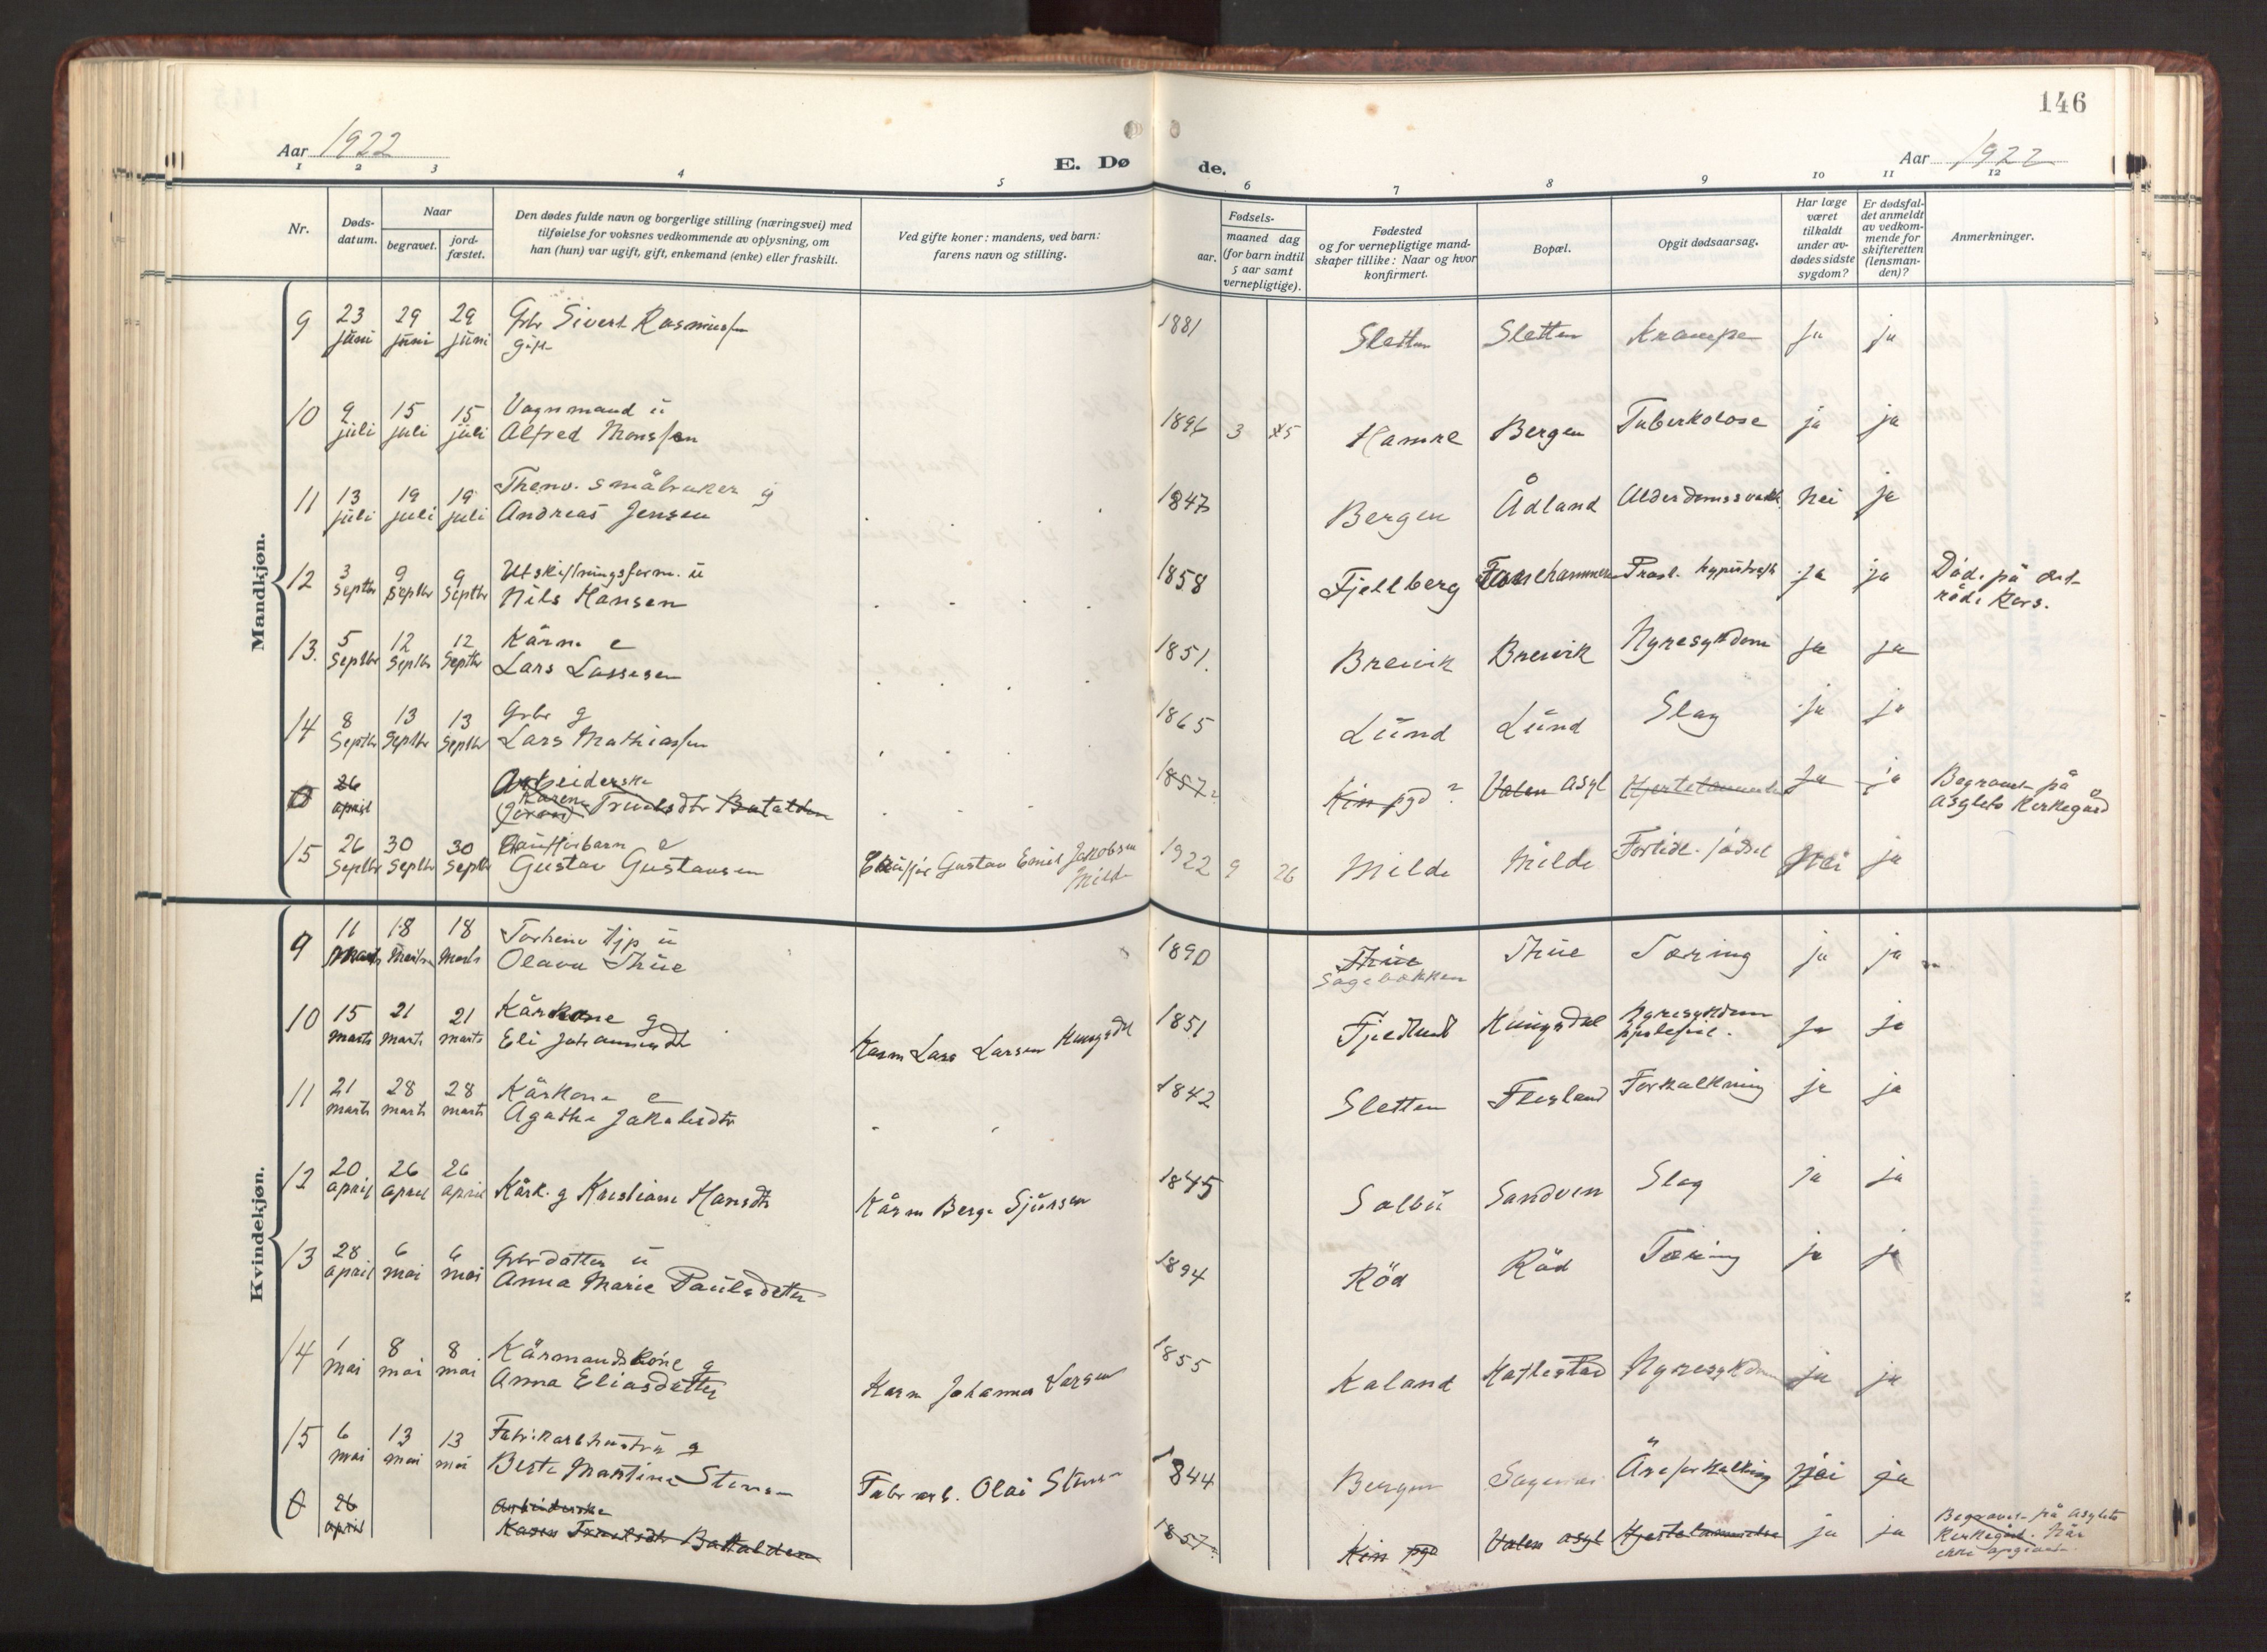 146
Aar 1922
E. Dø
de.
Aar 1922
1 2 3 4 5 6 7 8 9 10 11 12
Nr.
Døds-
datum.
Naar
begravet.
jord-
fæstet.
Den dødes fulde navn og borgerlige stilling (næringsvei) med
tilføielse for voksnes vedkommende av oplysning, om
han (hun) var ugift, gift, enkemand (enke) eller fraskilt.
Ved gifte koner: mandens, ved barn:
farens navn og stilling.
Fødsels-
aar.
maaned dag
(for barn indtil
5 aar samt
vernepligtige).
Fødested
og for vernepligtige mand-
skaper tillike: Naar og hvor
konfirmert.
Bopæl.
Opgit dødsaarsag.
Har læge
været
tilkaldt
under av-
dødes sidste
sygdom?
Er dødsfal-
det anmeldt
av vedkom-
mende for
skifteretten
(lensman-
den)?
Anmerkninger.
Mandkjøn.
9 23 juni 29 juni 29 juni Gbr Sivert Rasmussen 1881 Sletten Sletten Krampe ja ja
gift
10 9 juli 15 juli 15 juli Vognmand ü
Alfred Monssen 1896 3 Hamre Bergen Tuberkolose ja ja
11 13 juli 19 juli 19 juli småbruker g
Andreas Jensen 1847 Bergen Ådland Alderdomssvakh nei ja
12 3 Septbr 9 Septbr 9 Septbr Utskiftningsform. ü
Nils Hansen 1858 Fjellberg Prost. hypertrofi ja ja Död på det
röde Kors.
13. 5 Septbr 12 Septbr 12 Septbr Kårm. e
Lars Lassesen 1851. Breivik Breivik Nyresykdom ja ja
14 8 Septbr 13 Septbr 13 Septbr Gbr g
Lars Mathiassen 1865 Lünd Lünd Slag ja ja
0 26 april Arbeiderske
Karen Truelsdtr Batalden 1857? Kin pgd ? Valen Asyl Hjertelammelse ja ja Begravet på
Asylets Kirkegård
15 26 Septbr 30 Septbr 30 Septbr Chaufförbarn e
Gustav Gustavsen Chaufför Gustav Emil Jakobsen 1922 9 26 Milde Milde Fortidl. födsel nei ja
Milde
Kvindekjøn.
9 11 marts 18 marts 18 marts Tjp ü
Olava Thüe 1890 Thüe Thüe Tæring ja ja
Sagebakken
10 15 marts 21 marts 21 marts Kårkone g
Eli Johannesdtr Kårm Lars Larsen Kungsdal 1851 Kungsdal Nyresykdom ja ja
hjertefeil.
11 21 marts 28 marts 28 marts Kårkone e
Agatha Jakobsdtr 1842 Sletten Flesland Forkalkning ja ja
12 20 april 26 april 26 april Kårk. g Kristiane Hansdtr Kårm Berge Sjursen 1845 Salbü Sandven Slag ja ja
13 28 april 6 mai 6 mai Gbrdatter ü
Anna Marie Paulsdatter 1894 Röd Röd Tæring ja ja
14 1 mai 8 mai 8 mai Kårmandskone g
Anna Eliasdatter Kårm Johannes Larsen 1855 Kaland Nyresykdom ja ja
15 6 mai 13 mai 13 mai Fabrikarbhustru g
Martine Stensen Fabr arb. Olai Stensen 1844 Bergen Åreforkalkning nei ja
0 26 april Arbeiderske
Karen Truelsdtr Batalden 1857? Kin pgd Valen asyl Hjertelammelse ja ja Begravet på Asylets
Kirkegård. Når
ikke opgivet.